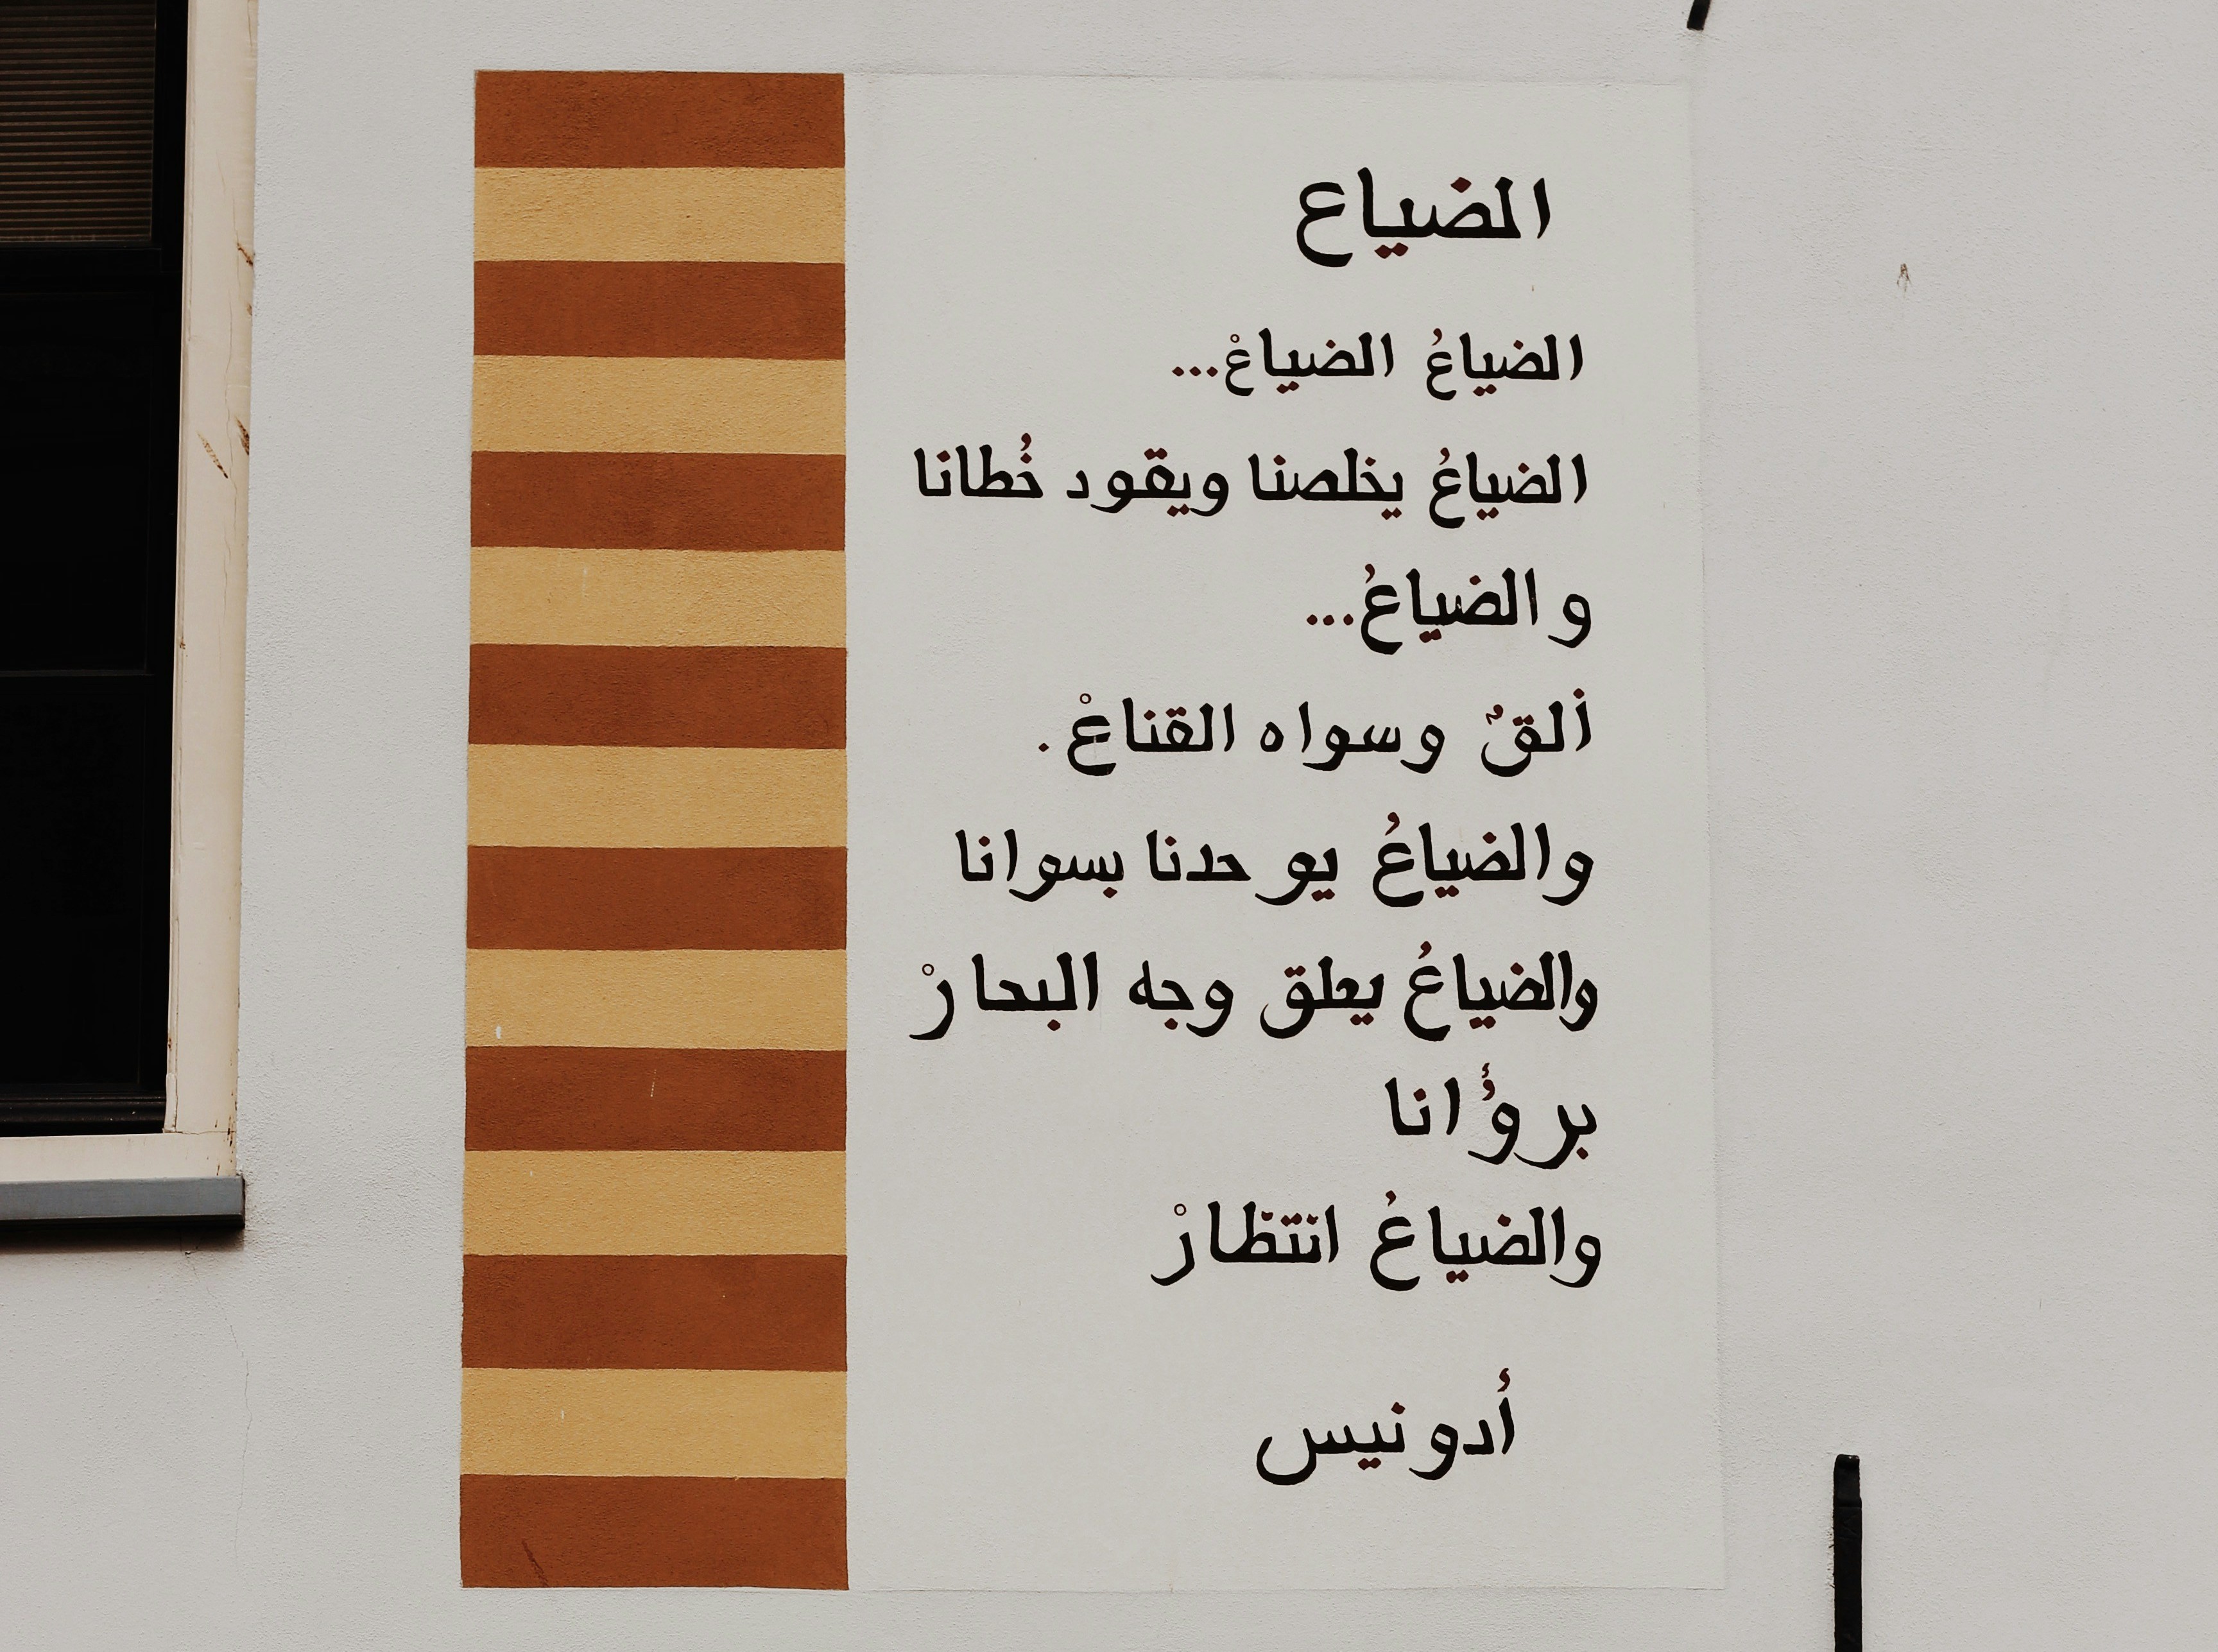 الضياع
الضياعُ الضياعْ...
الضياعُ يخلصنا ويقود خُطانا
و الضياعُ...
ألقٌ وسواه القناعْ.
والضياعُ يوحدنا بسوانا
والضياعُ يعلق وجه البحارْ
برؤُانا
والضياعُ انتظارْ
أدونيس